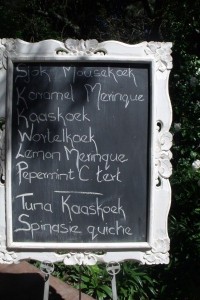 Sjok Moussekoek
Karamel Meringue
Kaaskoek
Wortelkoek
Lemon Meringue
Pepermint C tert
Tuna Kaaskoek
Spinasie quiche